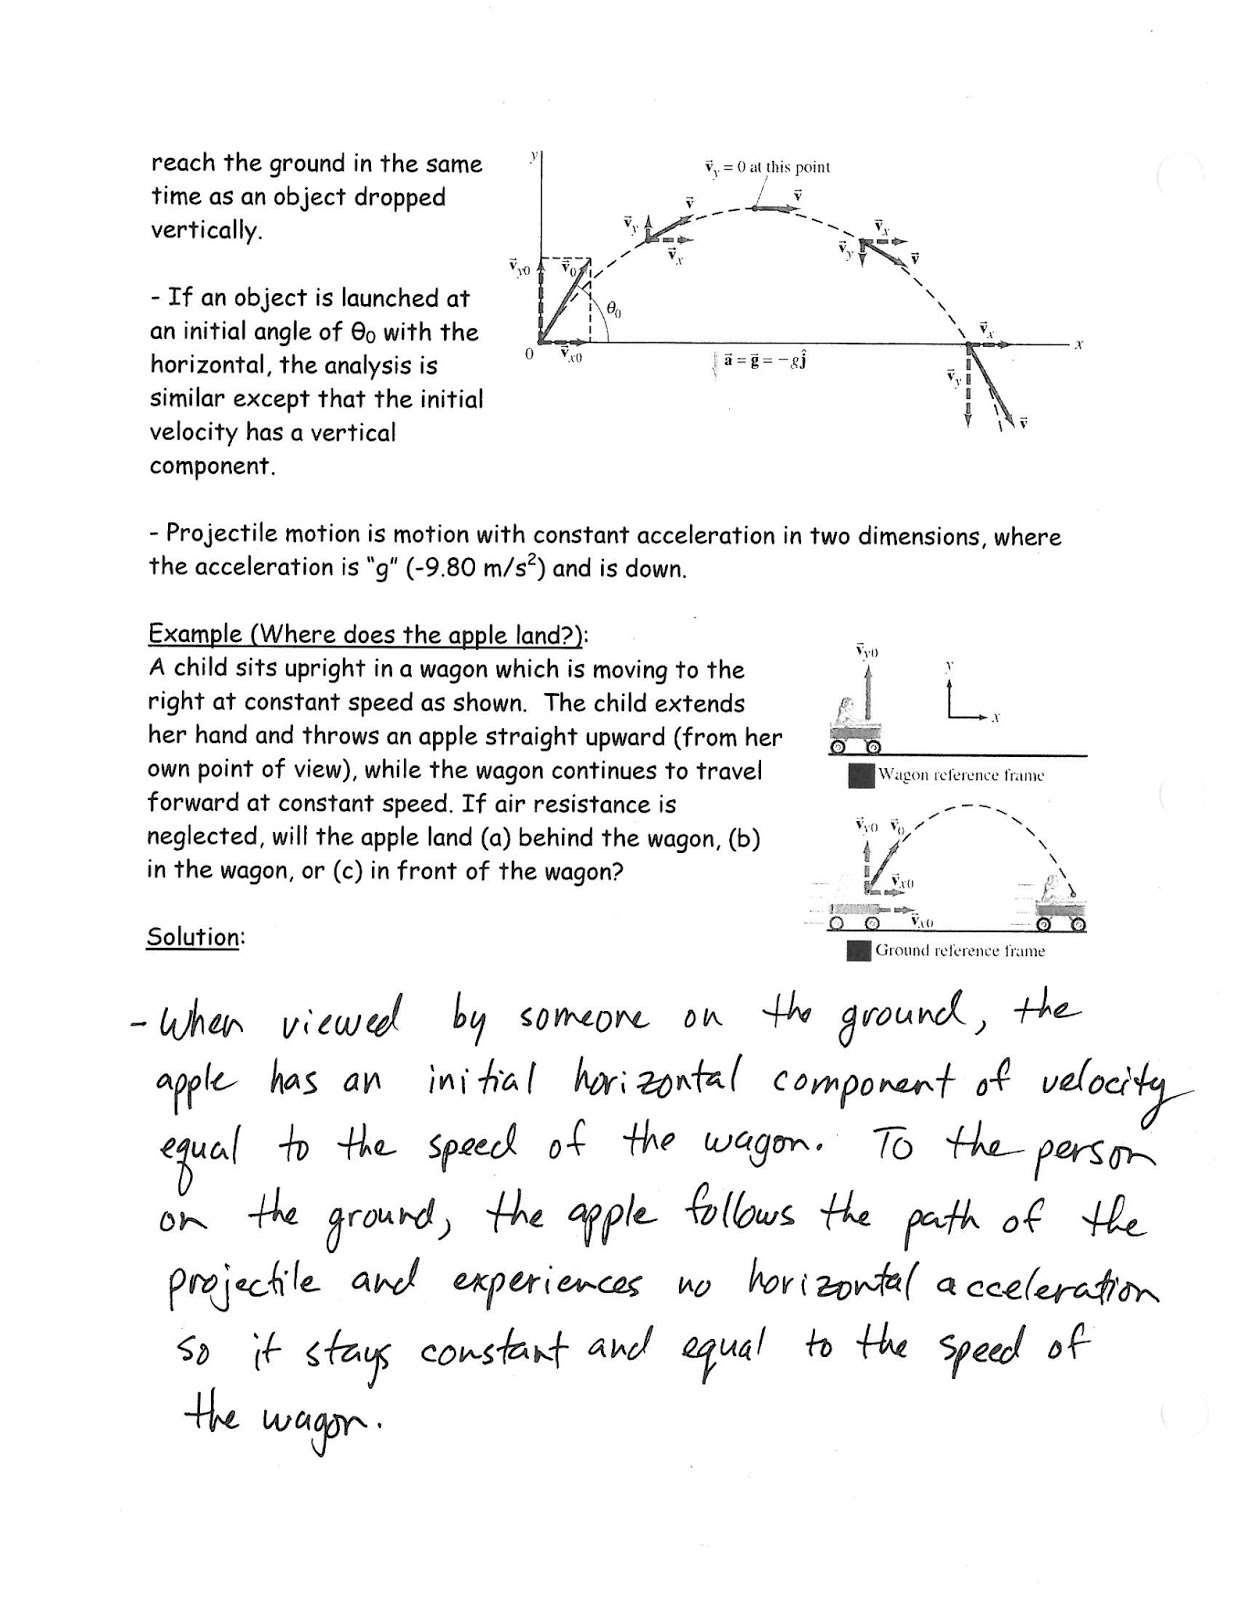 reach the ground in the same
time as an object dropped
vertically.
- If an object is launched at
an initial angle of θ₀ with the
horizontal, the analysis is
similar except that the initial
velocity has a vertical
component.
y
v⃗y = 0 at this point
v⃗
v⃗
v⃗y
v⃗x
v⃗x
v⃗y
v⃗
v⃗y0
v⃗0
θ₀
v⃗x
x
0
v⃗x0
a⃗ = g⃗ = −gĵ
v⃗y
v⃗
- Projectile motion is motion with constant acceleration in two dimensions, where
the acceleration is "g" (-9.80 m/s²) and is down.
Example (Where does the apple land?):
A child sits upright in a wagon which is moving to the
right at constant speed as shown. The child extends
her hand and throws an apple straight upward (from her
own point of view), while the wagon continues to travel
forward at constant speed. If air resistance is
neglected, will the apple land (a) behind the wagon, (b)
in the wagon, or (c) in front of the wagon?
v⃗y0
y
x
Wagon reference frame
v⃗y0 v⃗0
v⃗x0
v⃗x0
Ground reference frame
Solution:
- When viewed by someone on the ground, the
apple has an initial horizontal component of velocity
equal to the speed of the wagon. To the person
on the ground, the apple follows the path of the
projectile and experiences no horizontal acceleration
so it stays constant and equal to the speed of
the wagon.